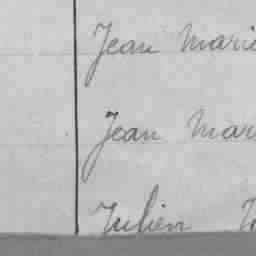 Jean Marie
Jean Mar
Julien